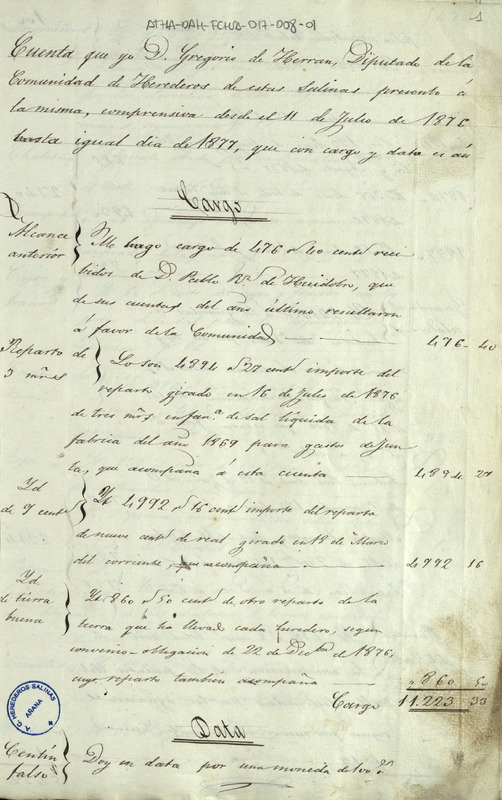 ATHA-DAH-FCHJZ-017-008-01
1
Cuenta que yo D. Gregorio de Herran, Diputado de la
Comunidad de Herederos de estas Salinas presento a
la misma, comprensiva desde el 11 de Julio de 1876
hasta igual dia de 1877, que con cargo y data es así
Cargo
De Alcance
anterior
Me hago cargo de 476 rs 40 cents reci
bidos de D. Pablo Rz de Huidobro, que
de sus cuentas del año último resultaron
á favor de la Comunidad 476-40
Reparto de
3 mrs
Lo son 4894 rs 27 cents importe del
reparto girado en 16 de Julio de 1876
de tres mrs en fana de sal líquida de la
fabrica del año 1869 para gastos de Jun
ta, que acompaña á esta cuenta 4894 27
Yd
de 9 cents
Yt 4992 rs 16 cents importe del reparto
de nueve cents de real girado en 18 de Marzo
del corriente, que acompaña 4992 16
Yd.
de tierra
buena
Yt 860 rs 50 cents de otro reparto de la
tierra que ha llevado cada heredero, segun
convenio-obligacion de 22 de Dcbre de 1876,
cuyo reparto tambien acompaña 860 50
Cargo 11.223 33
A. C. HEREDEROS SALINAS
ARANA
Data
Centin
falso
Doy en data por una moneda de